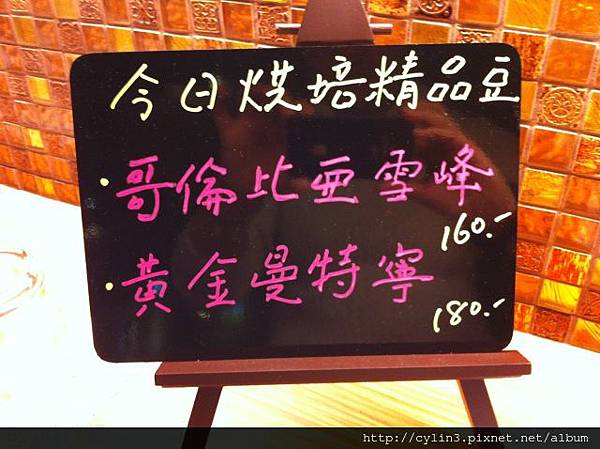 今日烘培精品豆
·哥倫比亞雪峰
160.-
·黃金曼特寧
180.-
http://cylin3.pixnet.net/album